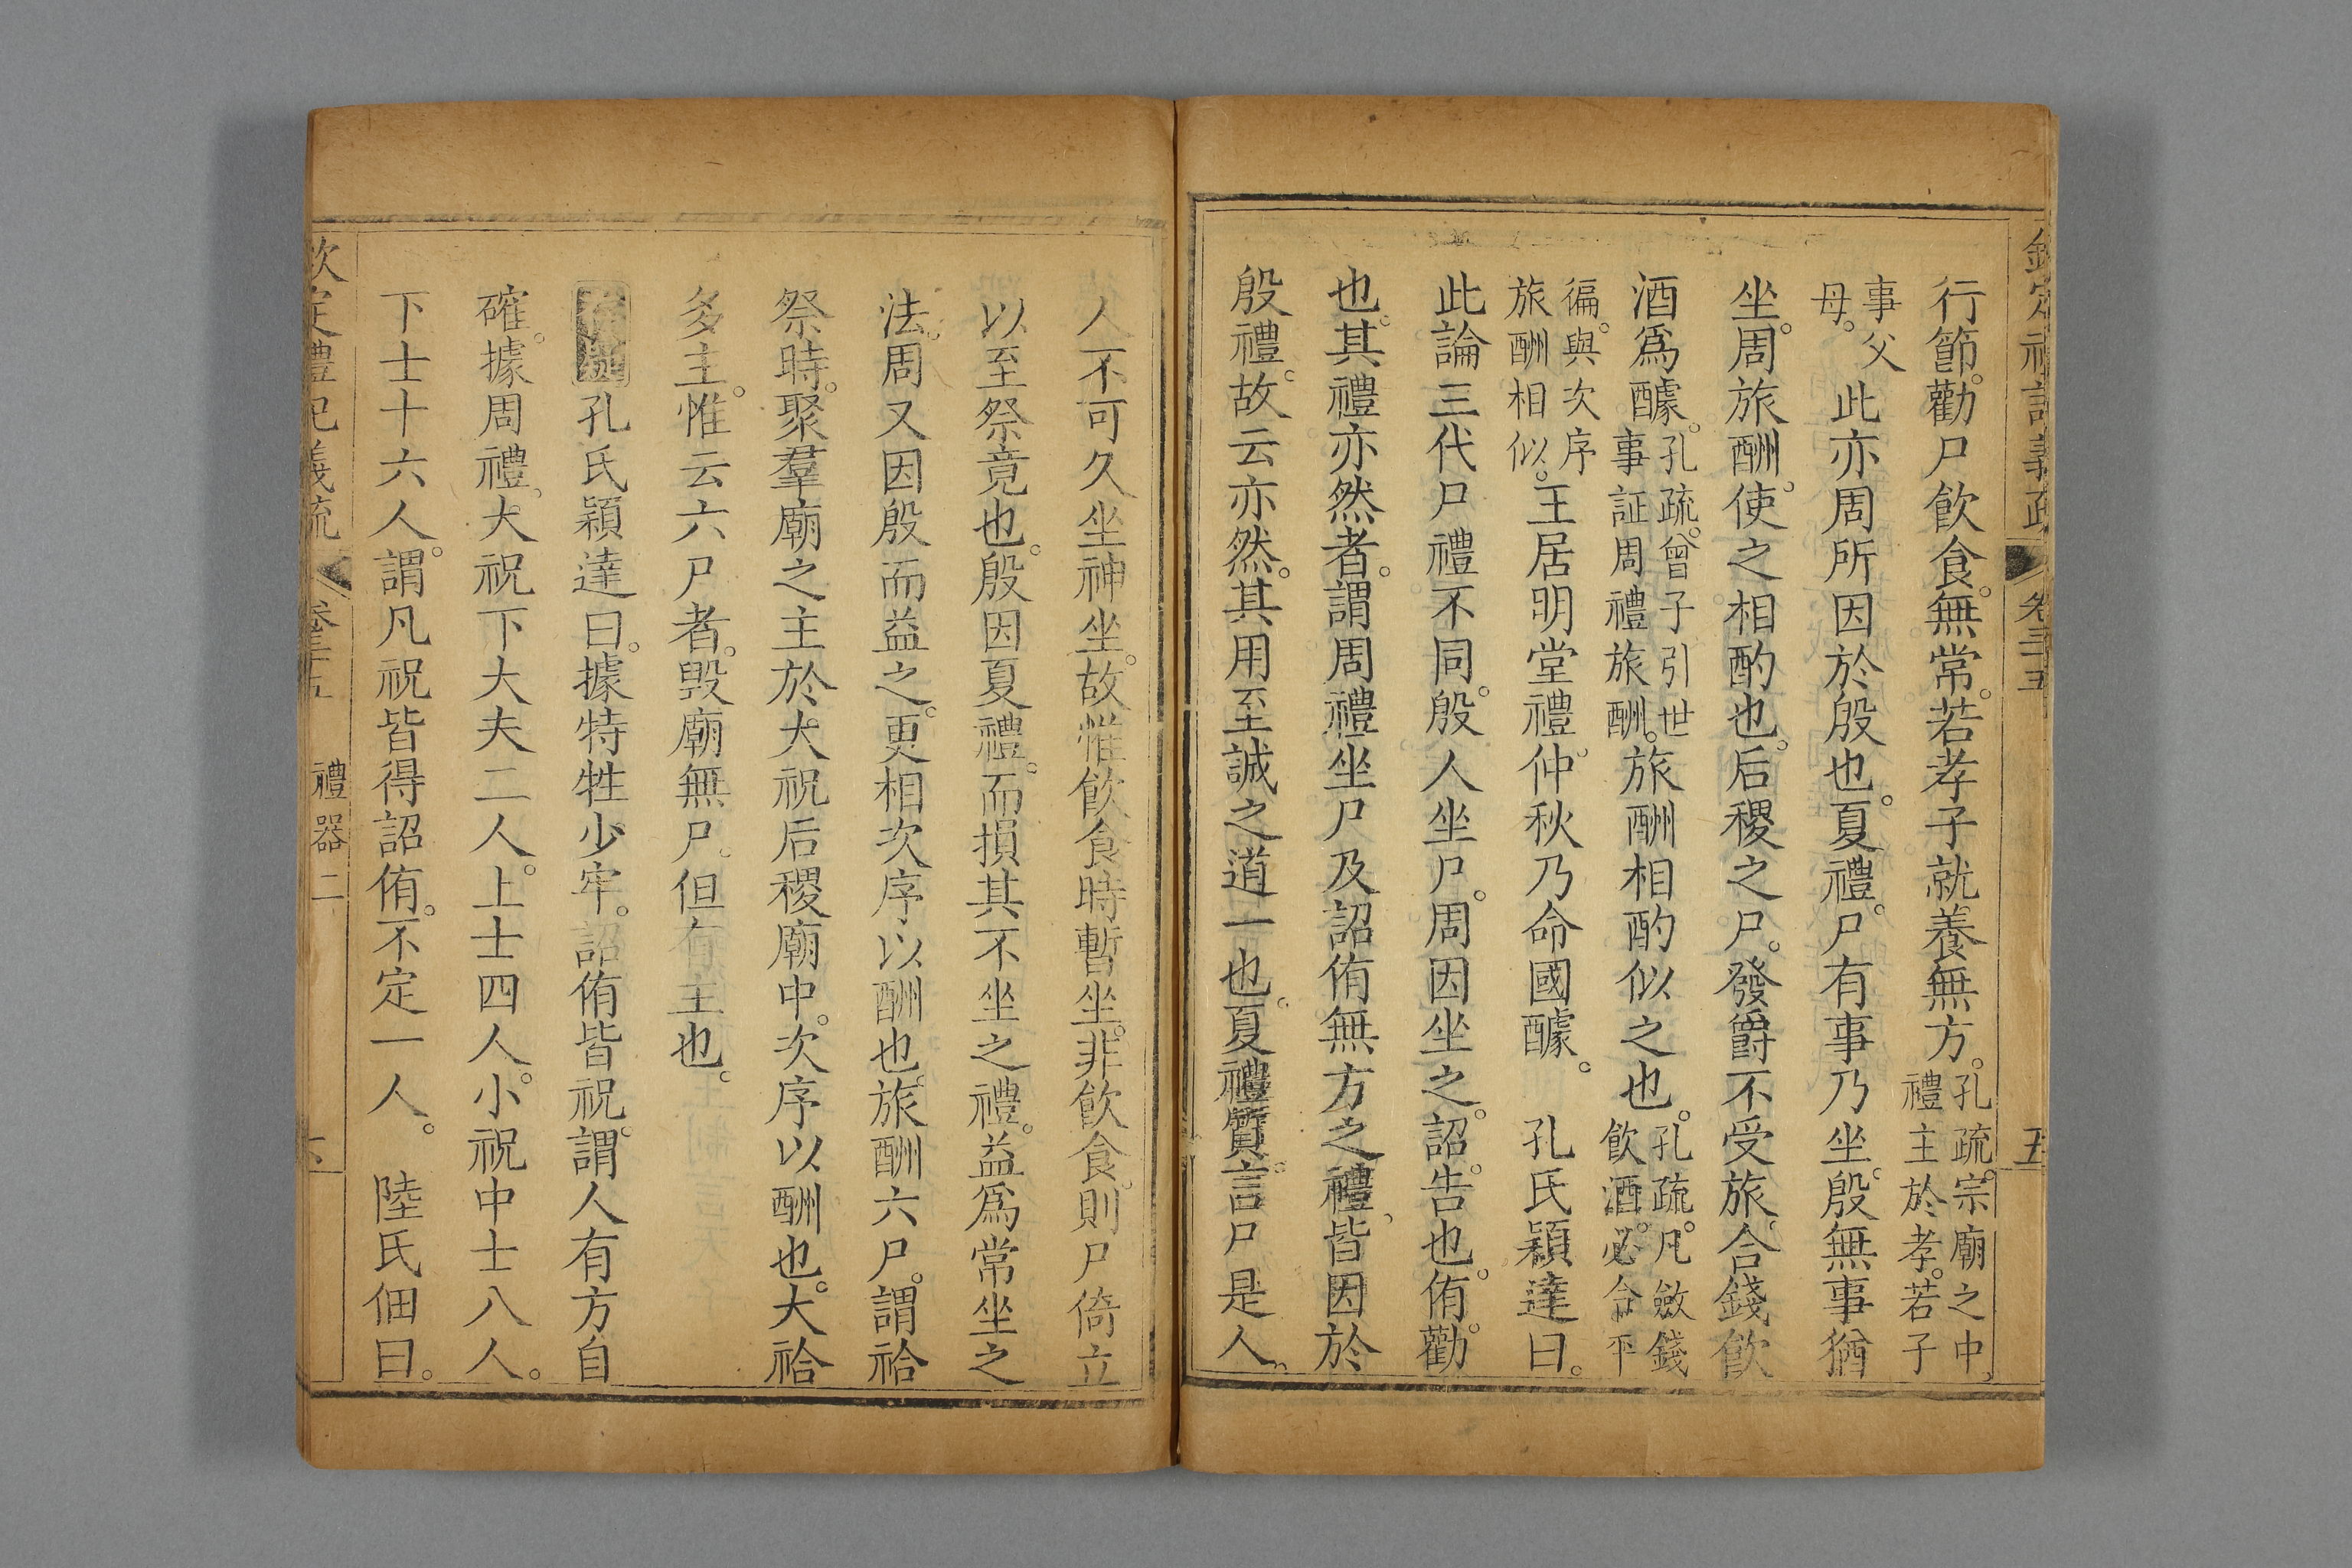 欽定禮記義疏 卷三五 五
行節勸尸飲食。無常。若孝子就養無方。孔疏。宗廟之中。禮主於孝。若子
事父母。此亦周所因於殷也。夏禮。尸有事乃坐。殷無事猶
坐。周旅酬。使之相酌也。后稷之尸。發爵不受旅。合錢飲
酒爲醵。孔疏。曾子引世事証周禮旅酬。旅酬相酌似之也。孔疏。凡斂錢飲酒。必令平
徧。與次序旅酬相似。王居明堂禮。仲秋乃命國醵。 孔氏穎達曰。
此論三代尸禮不同。殷人坐尸。周因坐之。詔。告也。侑。勸
也。其禮亦然者。謂周禮坐尸及詔侑無方之禮。皆因於
殷禮。故云亦然。其用至誠之道一也。夏禮質。言尸是人。
人不可久坐神坐。故惟飲食時暫坐。非飲食。則尸倚立
以至祭竟也。殷因夏禮。而損其不坐之禮。益爲常坐之
法。周又因殷而益之。更相次序以酬也。旅酬六尸。謂祫
祭時。聚羣廟之主於大祝后稷廟中。次序以酬也。大祫
多主。惟云六尸者。毀廟無尸。但有主也。
孔氏穎達曰。據特牲少牢。詔侑皆祝。謂人有方自
確。據周禮。大祝下大夫二人。上士四人。小祝中士八人。
下士十六人。謂凡祝皆得詔侑。不定一人。 陸氏佃曰。
欽定禮記義疏 卷三十五 禮器二 六